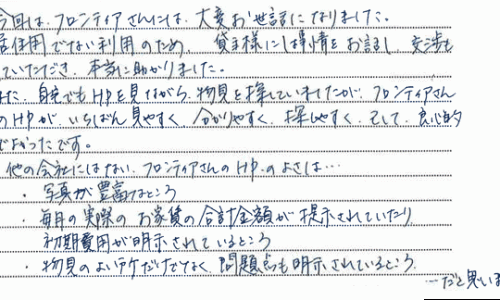 今回は、フロンティアさんには、大変お世話になりました。
居住用でない利用のため、貸主様には事情をお話し、交渉も
していただき、本当に助かりました。
また、自宅でもHPを見ながら、物見を探していましたが、フロンティアさん
のHPが、いちばん見やすく、分かりやすく、探しやすく、そして、良心的
でよかったです。
他の会社にはない、フロンティアさんのHP.のよさは…
・写真が豊富なところ
・毎月の実際のお家賃の合計金額が提示されていたり
初期費用が明示されているところ
・物見のよいだけでなく、問題点も明示されているところ.
…だと思いる